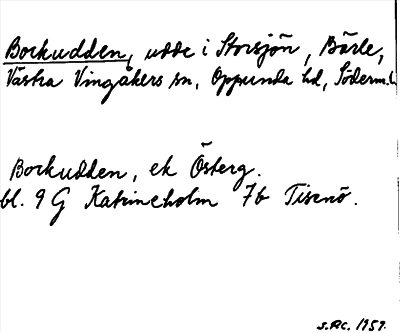 Bockudden, udde i Storsjön, Bärle,
Västra Vingåkers sn, Oppunda hd, Söderm.l.
Bockudden, ek Österg.
bl. 9 G Katrineholm 7b Tisenö.
S.RC. 1959.